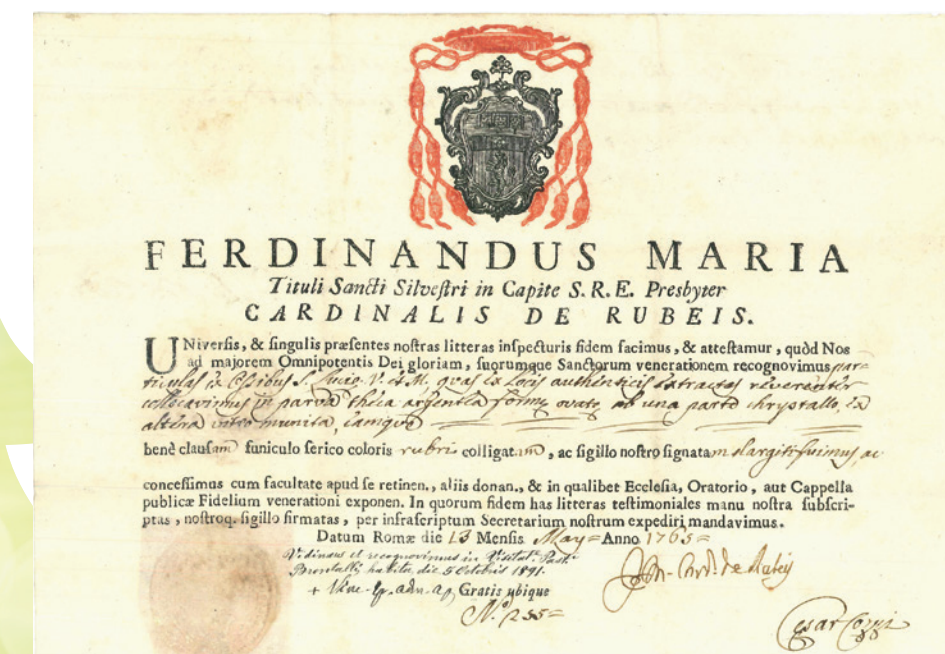 FERDINANDUS MARIA
Tituli Sancti Silvestri in Capite S. R. E. Presbyter
CARDINALIS DE RUBEIS.
UNiversis, & singulis præsentes nostras litteras inspecturis fidem facimus, & attestamur, quòd Nos
ad majorem Omnipotentis Dei gloriam, suorumque Sanctorum venerationem recognovimus par-
ticulas ex Ossibus S. V. & M. quas ex Locis authenticis extractas reverenter
collocavimus in parva theca argentea formæ ovatæ ab una parte chrystallo, ex
altera vitro munita, eamque
benè clausam funiculo serico coloris rubri colligatam, ac sigillo nostro signatam elargiti fuimus, ac
concessimus cum facultate apud se retinen., aliis donan., & in qualibet Ecclesia, Oratorio, aut Cappella
publicæ Fidelium venerationi exponen. In quorum fidem has litteras testimoniales manu nostra subscri-
ptas, nostroq. sigillo firmatas, per infrascriptum Secretarium nostrum expediri mandavimus.
Datum Romæ die 13 Mensis May = Anno 1765 =
Vidimus et recognovimus in Visitat. Past.
habita die 5 Octobris 1891.
+ Gratis ubique
N.º 255 =
F. M. Card. de Rubeis
Cesar